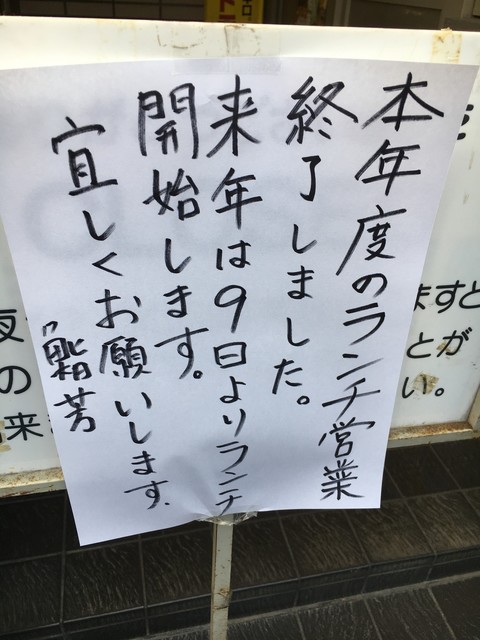 本年度のランチ営業
終了しました。
来年は9日よりランチ
開始します。
宜しくお願いします。
鮨芳
ますと
とが
い。
の
来